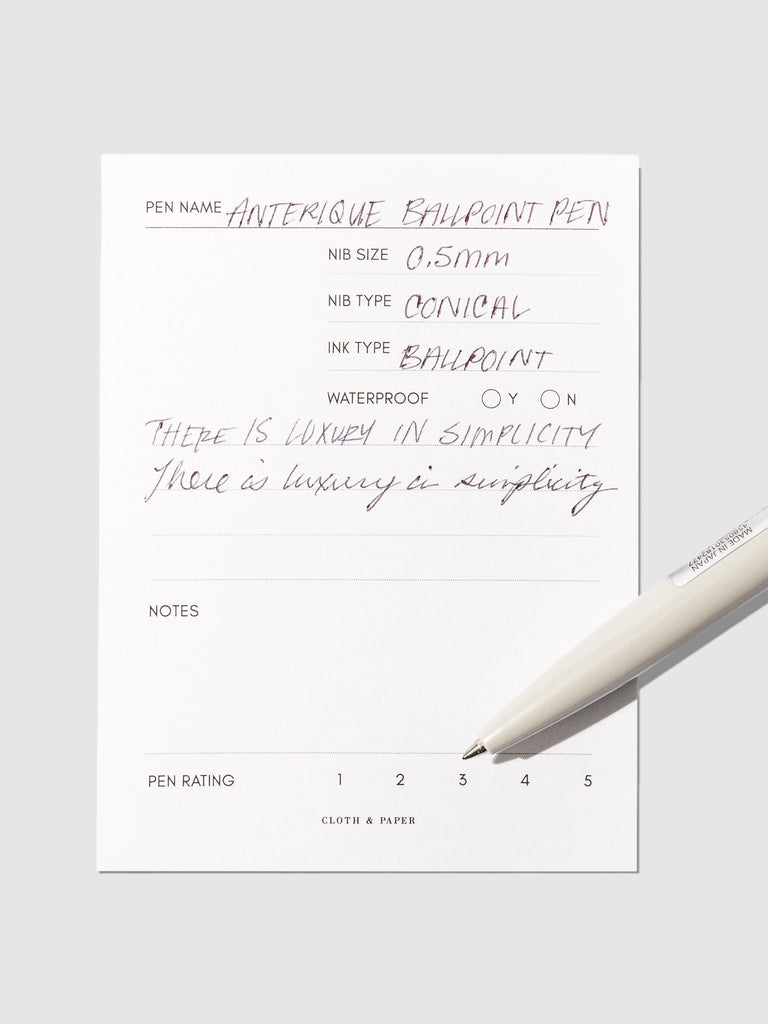 PEN NAME ANTERIQUE BALLPOINT PEN
NIB SIZE 0.5mm
NIB TYPE CONICAL
INK TYPE BALLPOINT
WATERPROOF Y N
THERE IS LUXURY IN SIMPLICITY
There is luxury in simplicity
MADE IN JAPAN
4580530182477
NOTES
PEN RATING 1 2 3 4 5
CLOTH & PAPER